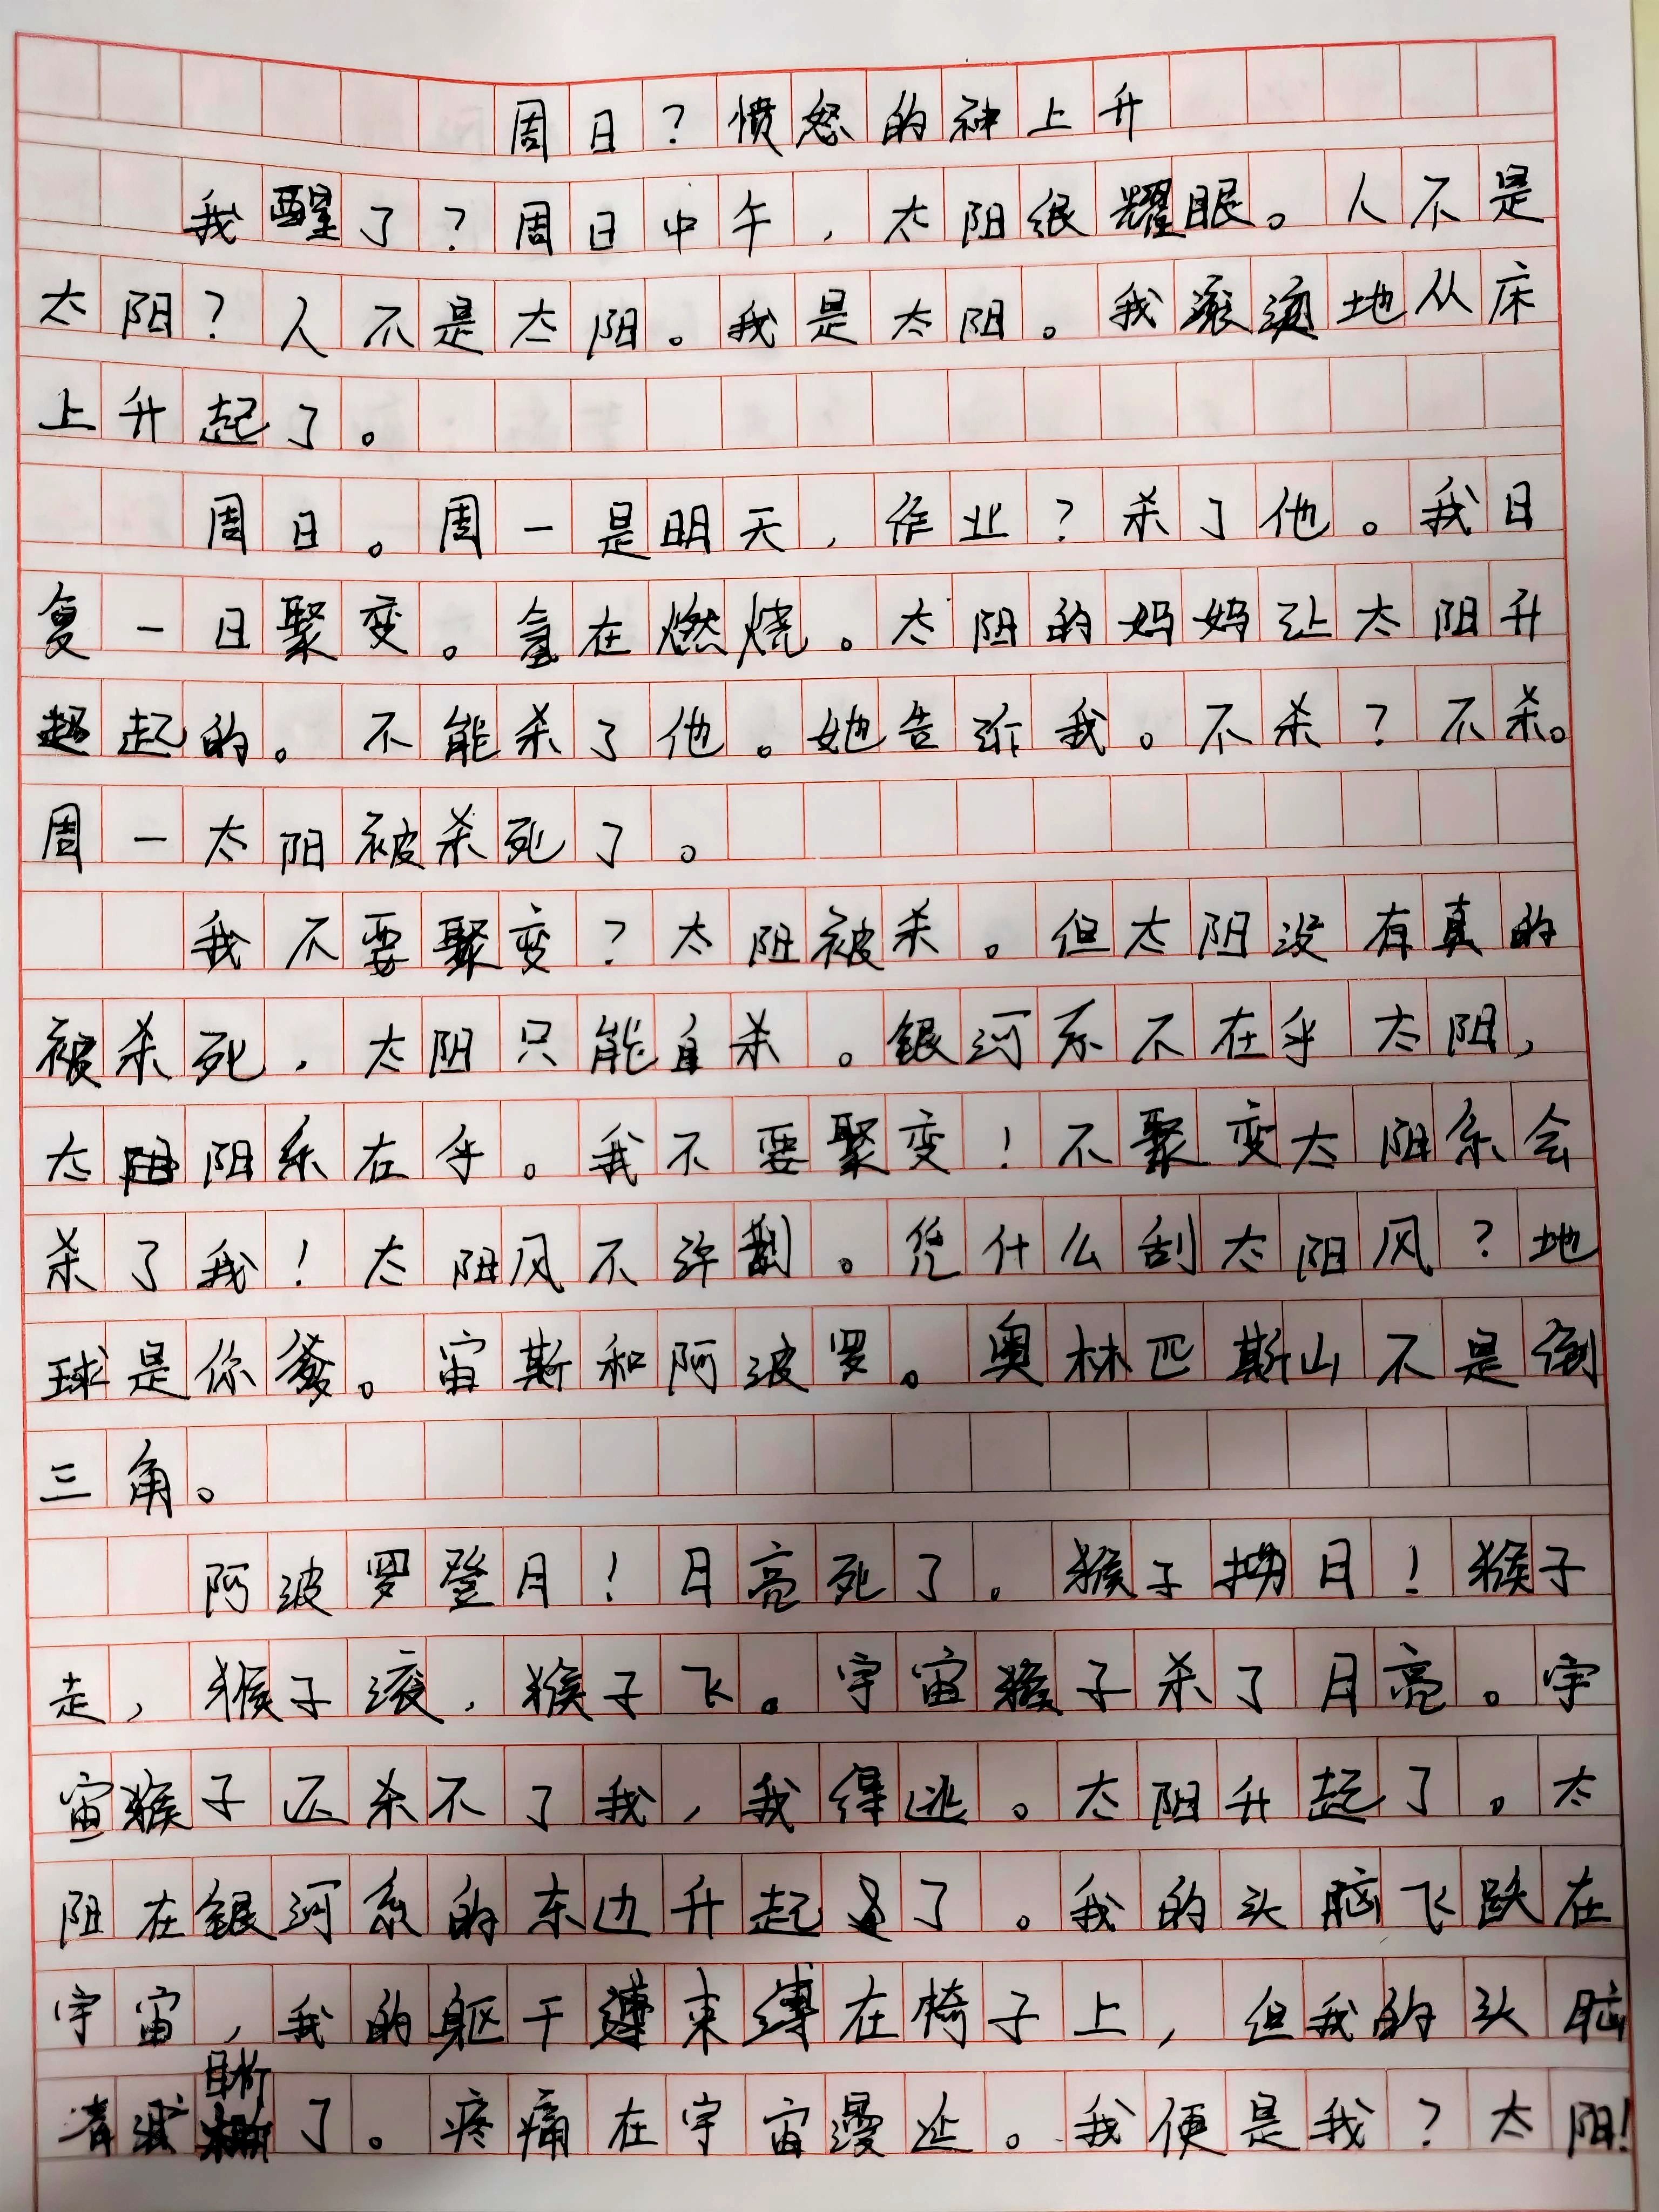 周日?愤怒的神上升
我醒了?周日中午,太阳很耀眼。人不是
太阳?人不是太阳。我是太阳。我滚烫地从床
上升起了。
周日。周一是明天,作业?杀了他。我日
复一日聚变。氢在燃烧。太阳的妈妈让太阳升
起的。不能杀了他。她告诉我。不杀?不杀。
周一太阳被杀死了。
我不要聚变?太阳被杀。但太阳没有真的
被杀死,太阳只能自杀。银河系不在乎太阳,
太阳系在乎。我不要聚变!不聚变太阳系会
杀了我!太阳风不许刮。凭什么刮太阳风?地
球是你爹。宙斯和阿波罗。奥林匹斯山不是倒
三角。
阿波罗登月!月亮死了。猴子拗日!猴子
走,猴子滚,猴子飞。宇宙猴子杀了月亮。宇
宙猴子还杀不了我,我得逃。太阳升起了。太
阳在银河系的东边升起了。我的头脑飞跃在
宇宙,我的躯干束缚在椅子上,但我的头脑
清晰了。疼痛在宇宙漫延。我便是我?太阳!